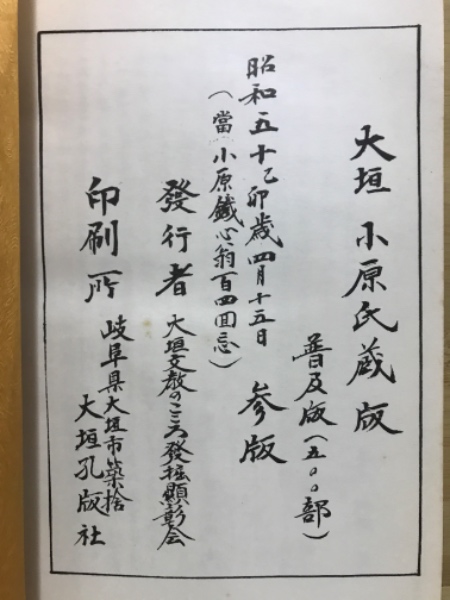 大垣 小原氏蔵版
普及版(五〇〇部)
昭和五十乙卯歳四月十五日 参版
(當小原鐵心翁百四回忌)
發行者 大垣文教のこころ發掘顕彰会
印刷所 岐阜県大垣市築捨
大垣孔版社